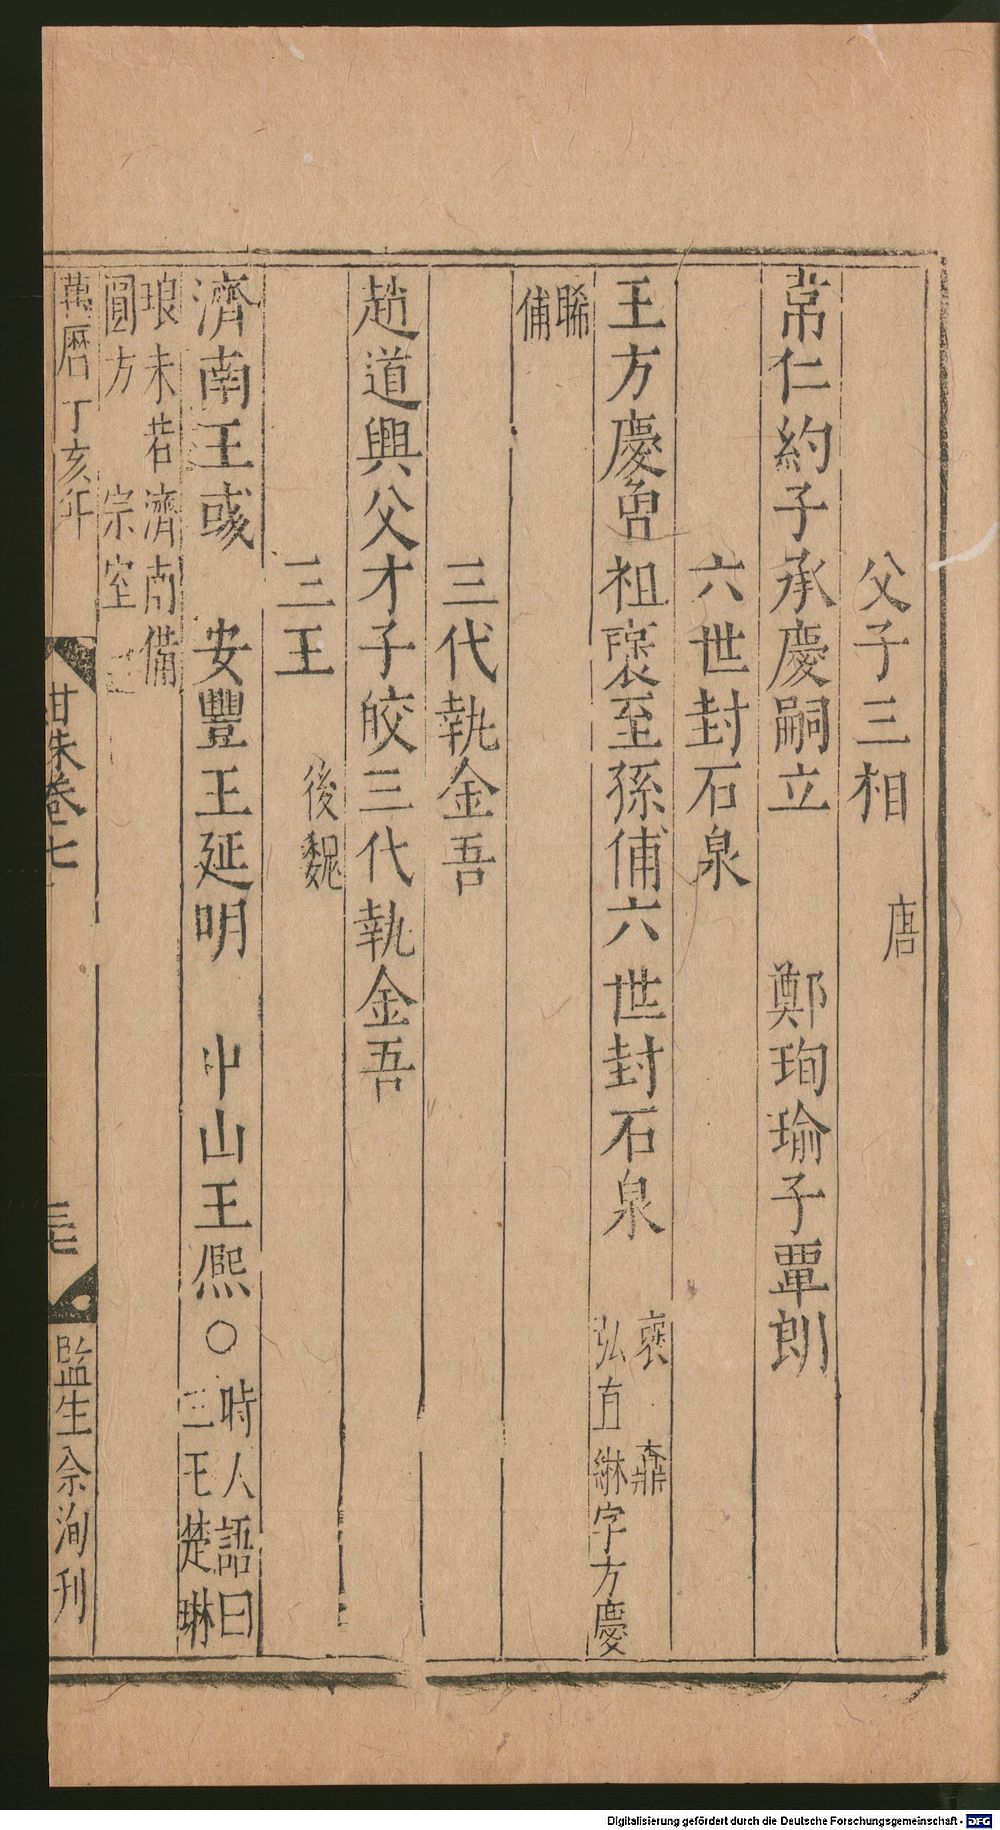 父子三相 唐
韋仁約子承慶嗣立 鄭珣瑜子覃朗
六世封石泉
王方慶曾祖襃至孫俌六世封石泉 襃 鼐 弘直 綝字方慶
晞 俌
三代執金吾
趙道興父才子皎三代執金吾
三王 後魏
濟南王彧 安豐王延明 中山王熈○時人語曰三王楚琳
琅未若濟南備圓方 宗室
萬曆丁亥年 卷七 三七 監生余洵刊
Digitalisierung gefördert durch die Deutsche Forschungsgemeinschaft - DFG